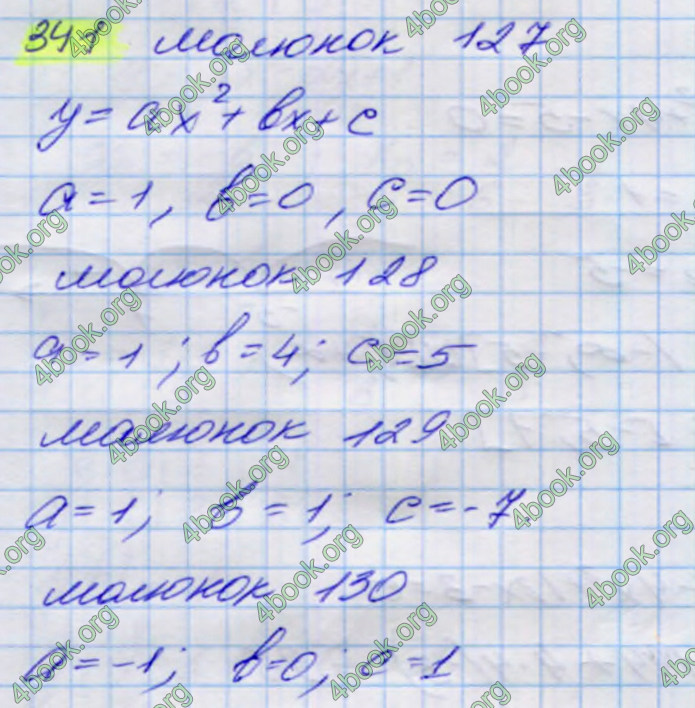 малюнок 127
y = ax² + bx + c
a = 1, b = 0, c = 0
малюнок 128
a = 1; b = 4; c = 5
малюнок 129
a = 1; b = 1; c = -7.
малюнок 130
a = -1; b = 0; c = 1
4book.org